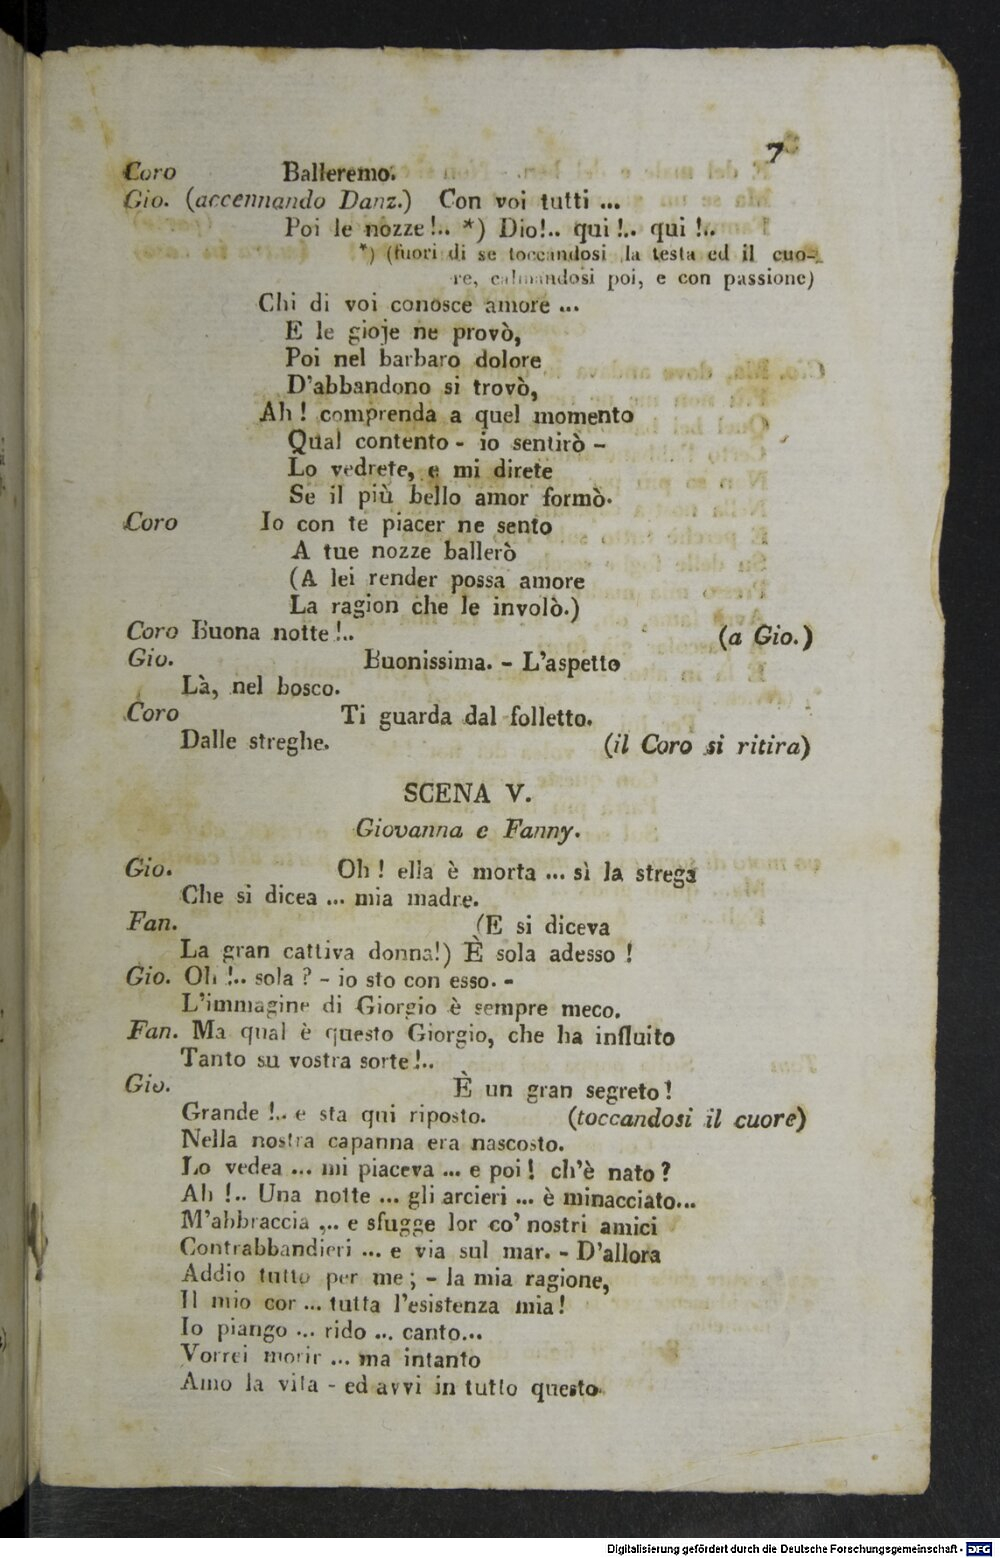 7
Coro Balleremo.
Gio. (accennando Danz.) Con voi tutti ...
Poi le nozze!.. *) Dio!.. qui!.. qui!..
*) (fuori di se toccandosi la testa ed il cuo-
re, calmandosi poi, e con passione)
Chi di voi conosce amore ...
E le gioje ne provò,
Poi nel barbaro dolore
D'abbandono si trovò,
Ah! comprenda a quel momento
Qual contento - io sentirò -
Lo vedrete, e mi direte
Se il più bello amor formò.
Coro Io con te piacer ne sento
A tue nozze ballerò
(A lei render possa amore
La ragion che le involò.)
Coro Buona notte!.. (a Gio.)
Gio. Buonissima. - L'aspetto
Là, nel bosco.
Coro Ti guarda dal folletto.
Dalle streghe. (il Coro si ritira)
SCENA V.
Giovanna e Fanny.
Gio. Oh! ella è morta ... sì la strega
Che si dicea ... mia madre.
Fan. (E si diceva
La gran cattiva donna!) È sola adesso!
Gio. Oh!.. sola? - io sto con esso. -
L'immagine di Giorgio è sempre meco.
Fan. Ma qual è questo Giorgio, che ha influito
Tanto su vostra sorte!..
Gio. È un gran segreto!
Grande!.. e sta qui riposto. (toccandosi il cuore)
Nella nostra capanna era nascosto.
Lo vedea ... mi piaceva ... e poi! ch'è nato?
Ah!.. Una notte ... gli arcieri ... è minacciato...
M'abbraccia ... e sfugge lor co' nostri amici
Contrabbandieri ... e via sul mar. - D'allora
Addio tutto per me; - la mia ragione,
Il mio cor ... tutta l'esistenza mia!
Io piango ... rido ... canto...
Vorrei morir ... ma intanto
Amo la vita - ed avvi in tutto questo
Digitalisierung gefördert durch die Deutsche Forschungsgemeinschaft - DFG